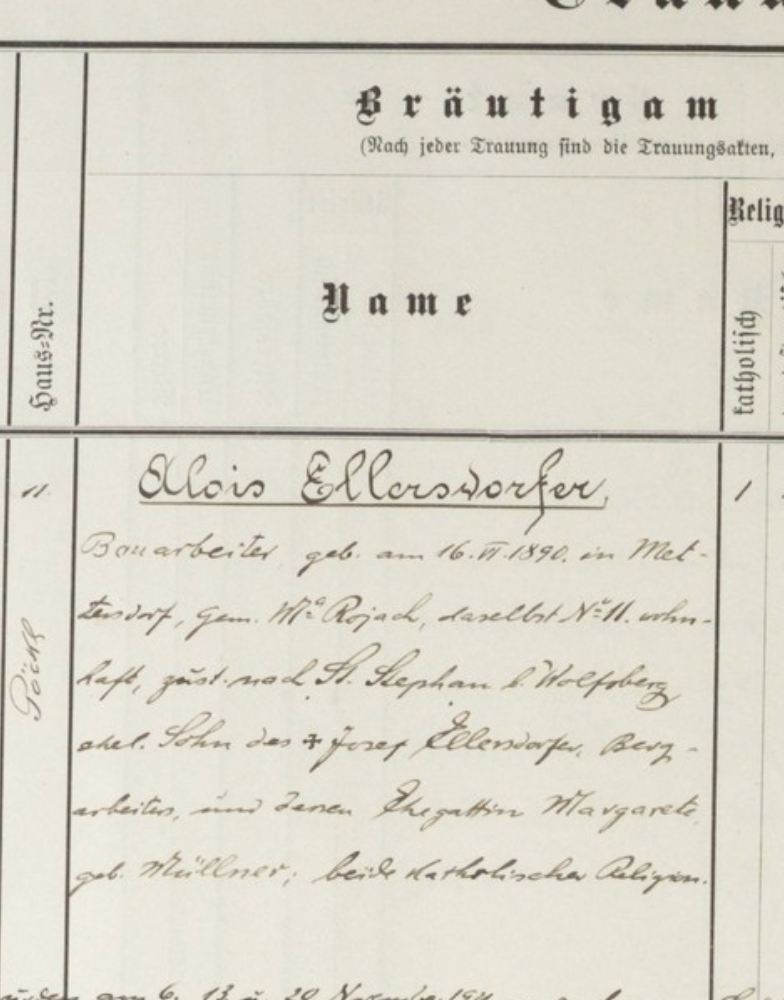 Bräutigam
(Nach jeder Trauung sind die Trauungsakten,
Haus-Nr.
Name
Relig
katholisch
11.
Alois Ellersdorfer,
1
Bauarbeiter, geb. am 16. VI. 1890. in Met-
tersdorf, Gem. Mª Rojach, daselbst Nº 11. wohn-
haft, zust. nach St. Stephan b. Wolfsberg
ehel. Sohn des + Josef Ellersdorfer, Berg-
arbeiters, und dessen Ehegattin Margarete
geb. Müllner; beide katholischer Religion.
am 6. 13. u. 20. November